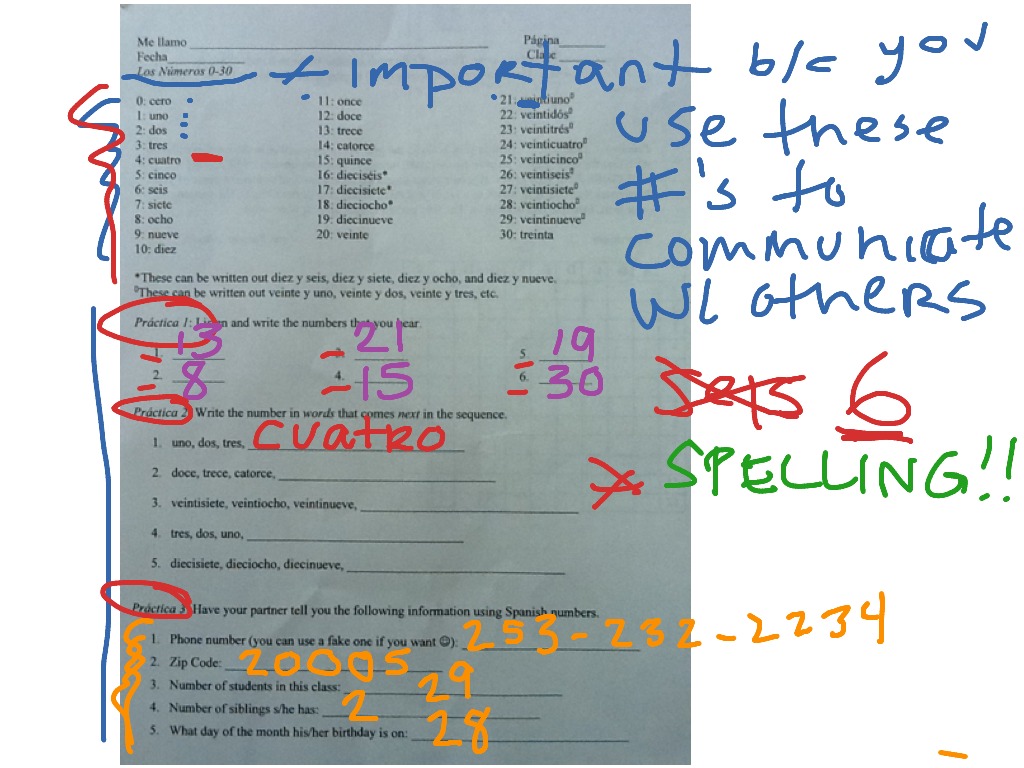 Me llamo Página
Fecha Clase
Los Números 0-30
* Important b/c you
use these
#'s to
communicate
w/ others
0: cero 11: once 21: veintiuno⁰
1: uno 12: doce 22: veintidós⁰
2: dos 13: trece 23: veintitrés⁰
3: tres 14: catorce 24: veinticuatro⁰
4: cuatro 15: quince 25: veinticinco⁰
5: cinco 16: dieciséis* 26: veintiseis⁰
6: seis 17: diecisiete* 27: veintisiete⁰
7: siete 18: dieciocho* 28: veintiocho⁰
8: ocho 19: diecinueve 29: veintinueve⁰
9: nueve 20: veinte 30: treinta
10: diez
*These can be written out diez y seis, diez y siete, diez y ocho, and diez y nueve.
⁰These can be written out veinte y uno, veinte y dos, veinte y tres, etc.
Práctica 1: Listen and write the numbers that you hear.
1. 13 3. 21 5. 19
2. 8 4. 15 6. 30
seis 6
Práctica 2: Write the number in words that comes next in the sequence.
1. uno, dos, tres, cuatro
* SPELLING!!
2. doce, trece, catorce,
3. veintisiete, veintiocho, veintinueve,
4. tres, dos, uno,
5. diecisiete, dieciocho, diecinueve,
Práctica 3: Have your partner tell you the following information using Spanish numbers.
1. Phone number (you can use a fake one if you want ☺): 253-232-2234
2. Zip Code: 20005
3. Number of students in this class: 29
4. Number of siblings s/he has: 2
5. What day of the month his/her birthday is on: 28